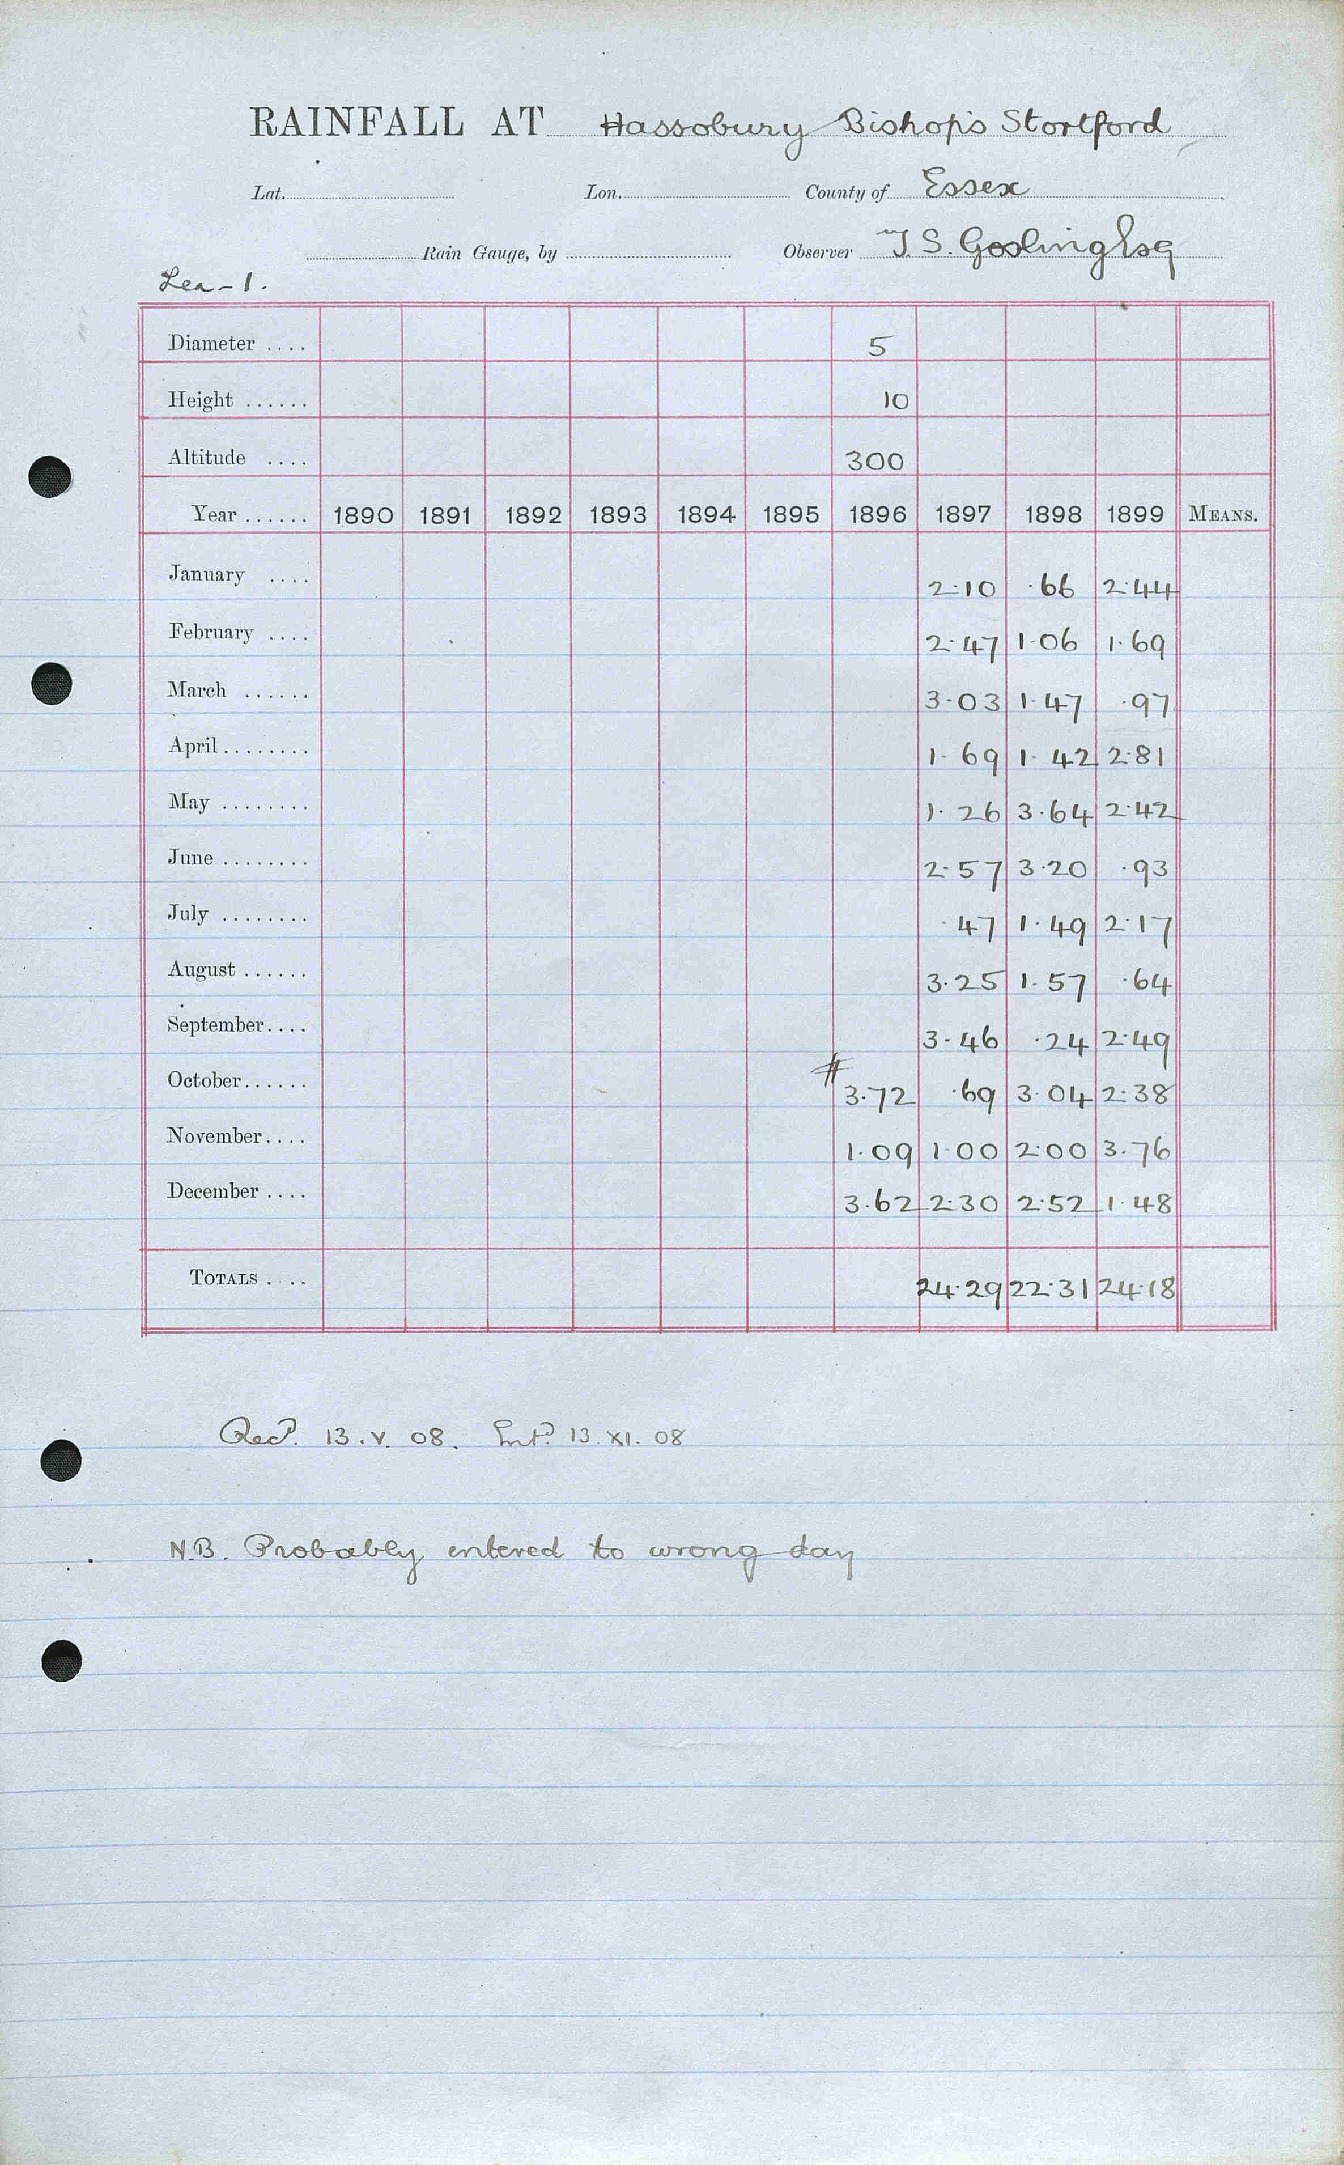 RAINFALL AT Hassobury Bishop's Stortford
Lat. Lon. County of Essex
Rain Gauge, by Observer J. S. Gosling Esq
Lea - 1.
Diameter .... 5
Height ...... 10
Altitude .... 300
Year ...... 1890 1891 1892 1893 1894 1895 1896 1897 1898 1899 MEANS.
January .... 2.10 .66 2.44
February .... 2.47 1.06 1.69
March ...... 3.03 1.47 .97
April ........ 1.69 1.42 2.81
May ........ 1.26 3.64 2.42
June ........ 2.57 3.20 .93
July ........ .47 1.49 2.17
August ...... 3.25 1.57 .64
September.... 3.46 .24 2.49
October...... # 3.72 .69 3.04 2.38
November.... 1.09 1.00 2.00 3.76
December .... 3.62 2.30 2.52 1.48
TOTALS .... 24.29 22.31 24.18
Recd. 13.V.08. Entd. 13.XI.08
N.B. Probably entered to wrong day